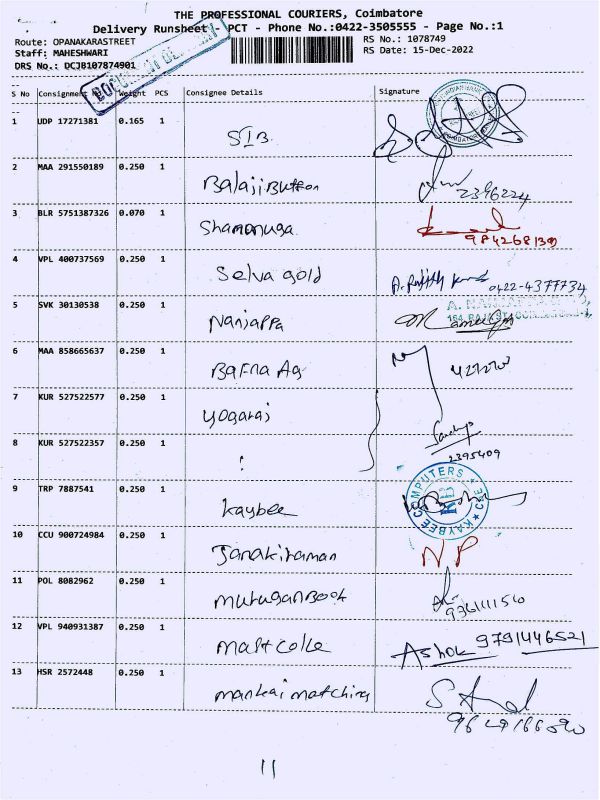 THE PROFESSIONAL COURIERS, Coimbatore
Delivery Runsheet PCT - Phone No.:0422-3505555 - Page No.:1
Route: OPANAKARASTREET
RS No.: 1078749
Staff: MAHESHWARI
RS Date: 15-Dec-2022
DRS No.: DCJB107874901
S No Consignment Weight PCS Consignee Details Signature
1 UDP 17271381 0.165 1 SIB
2 MAA 291550189 0.250 1 Balaji Button 2396224
3 BLR 5751387326 0.070 1 Shamonuga
4 VPL 400737569 0.250 1 Selva gold 0422-4377734
5 SVK 30130538 0.250 1 Nanjappa
6 MAA 858665637 0.250 1 Bafna Ag
7 KUR 527522577 0.250 1 yogaraj
8 KUR 527522357 0.250 1 2395409
9 TRP 7887541 0.250 1 kaybee KAYBEE COMPUTERS
10 CCU 900724984 0.250 1 Janakiraman NP
11 POL 8082962 0.250 1 murugan Book
12 VPL 940931387 0.250 1 Ashok 9791446521
13 HSR 2572448 0.250 1 mankai matching
11